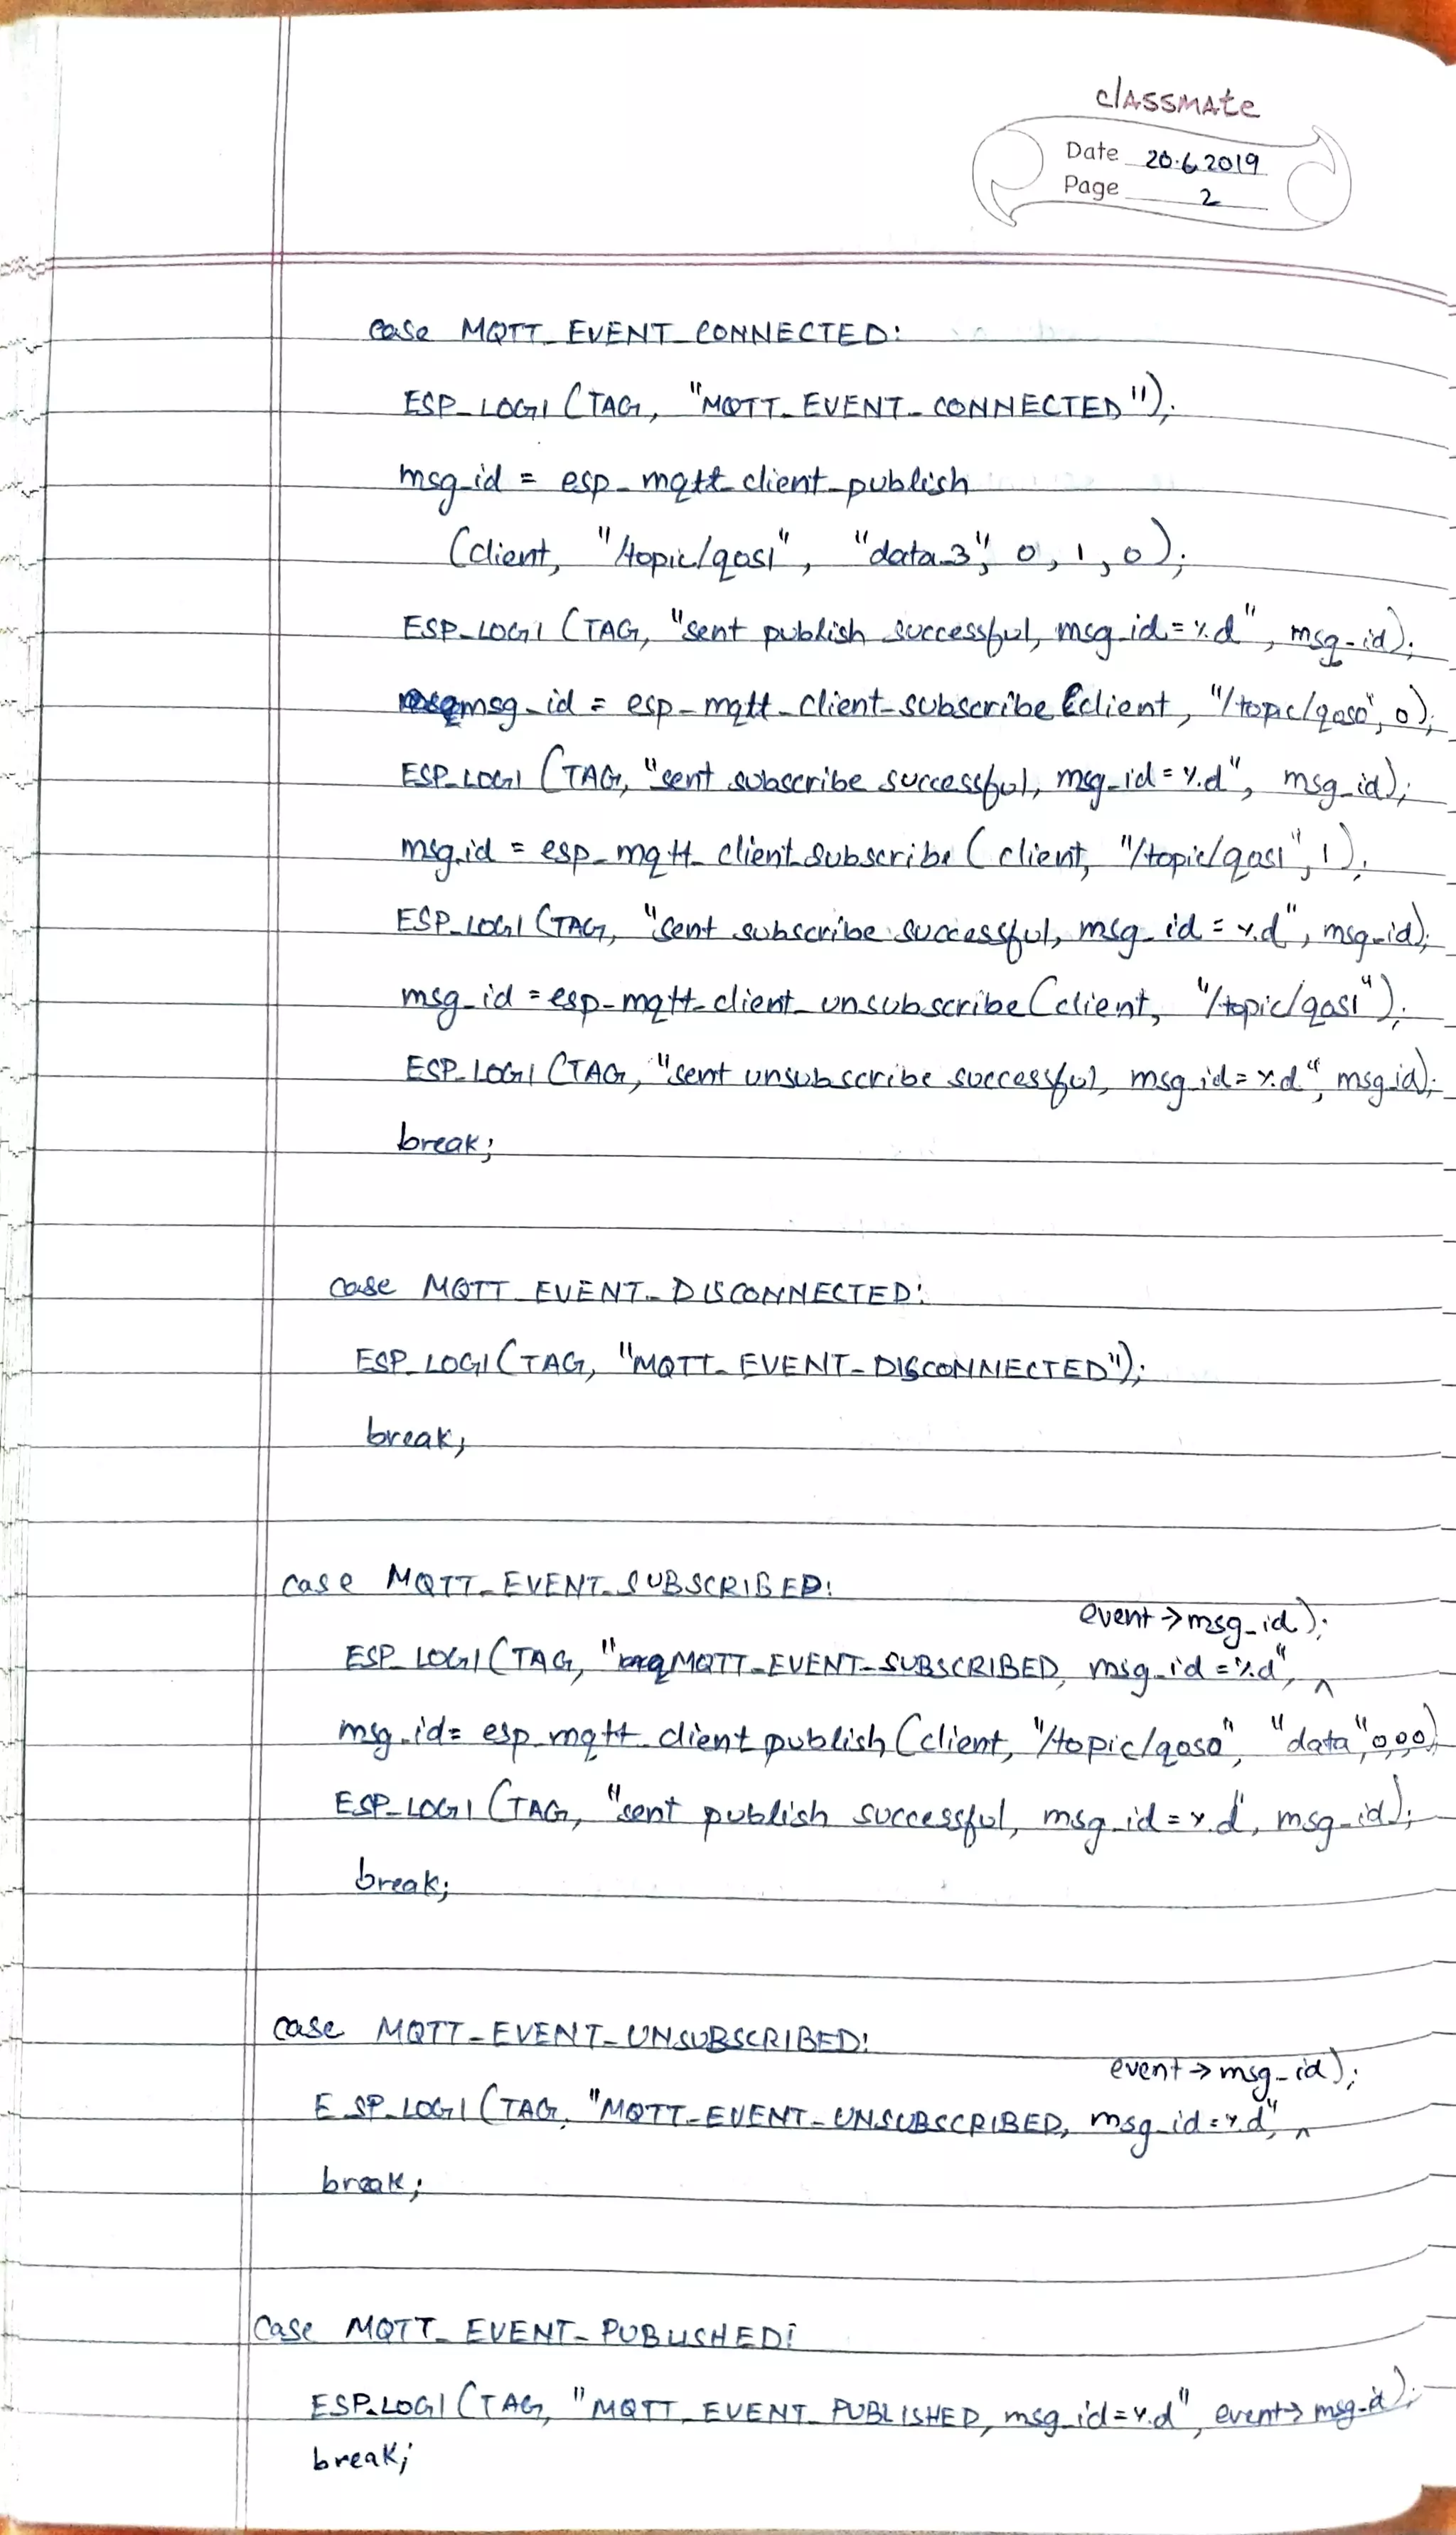 classmate
Date 20.6.2019
Page 2
case MQTT_EVENT_CONNECTED:
ESP_LOGI (TAG, "MQTT_EVENT_CONNECTED");
msg_id = esp_mqtt_client_publish
(client, "/topic/qos1", "data_3", 0, 1, 0);
ESP_LOGI (TAG, "sent publish successful, msg_id=%d", msg_id);
msg_id = esp_mqtt_client_subscribe (client, "/topic/qos0", 0);
ESP_LOGI (TAG, "sent subscribe successful, msg_id=%d", msg_id);
msg_id = esp_mqtt_client_subscribe (client, "/topic/qos1", 1);
ESP_LOGI (TAG, "sent subscribe successful, msg_id=%d", msg_id);
msg_id = esp_mqtt_client_unsubscribe (client, "/topic/qos1");
ESP_LOGI (TAG, "sent unsubscribe successful, msg_id=%d", msg_id);
break;
case MQTT_EVENT_DISCONNECTED:
ESP_LOGI (TAG, "MQTT_EVENT_DISCONNECTED");
break;
case MQTT_EVENT_SUBSCRIBED:
ESP_LOGI (TAG, "MQTT_EVENT_SUBSCRIBED, msg_id=%d", event->msg_id);
msg_id= esp_mqtt_client_publish (client, "/topic/qos0", "data", 0,0,0);
ESP_LOGI (TAG, "sent publish successful, msg_id=%d", msg_id);
break;
case MQTT_EVENT_UNSUBSCRIBED:
ESP_LOGI (TAG, "MQTT_EVENT_UNSUBSCRIBED, msg_id=%d", event->msg_id);
break;
case MQTT_EVENT_PUBLISHED:
ESP_LOGI (TAG, "MQTT_EVENT_PUBLISHED, msg_id=%d", event->msg_id);
break;